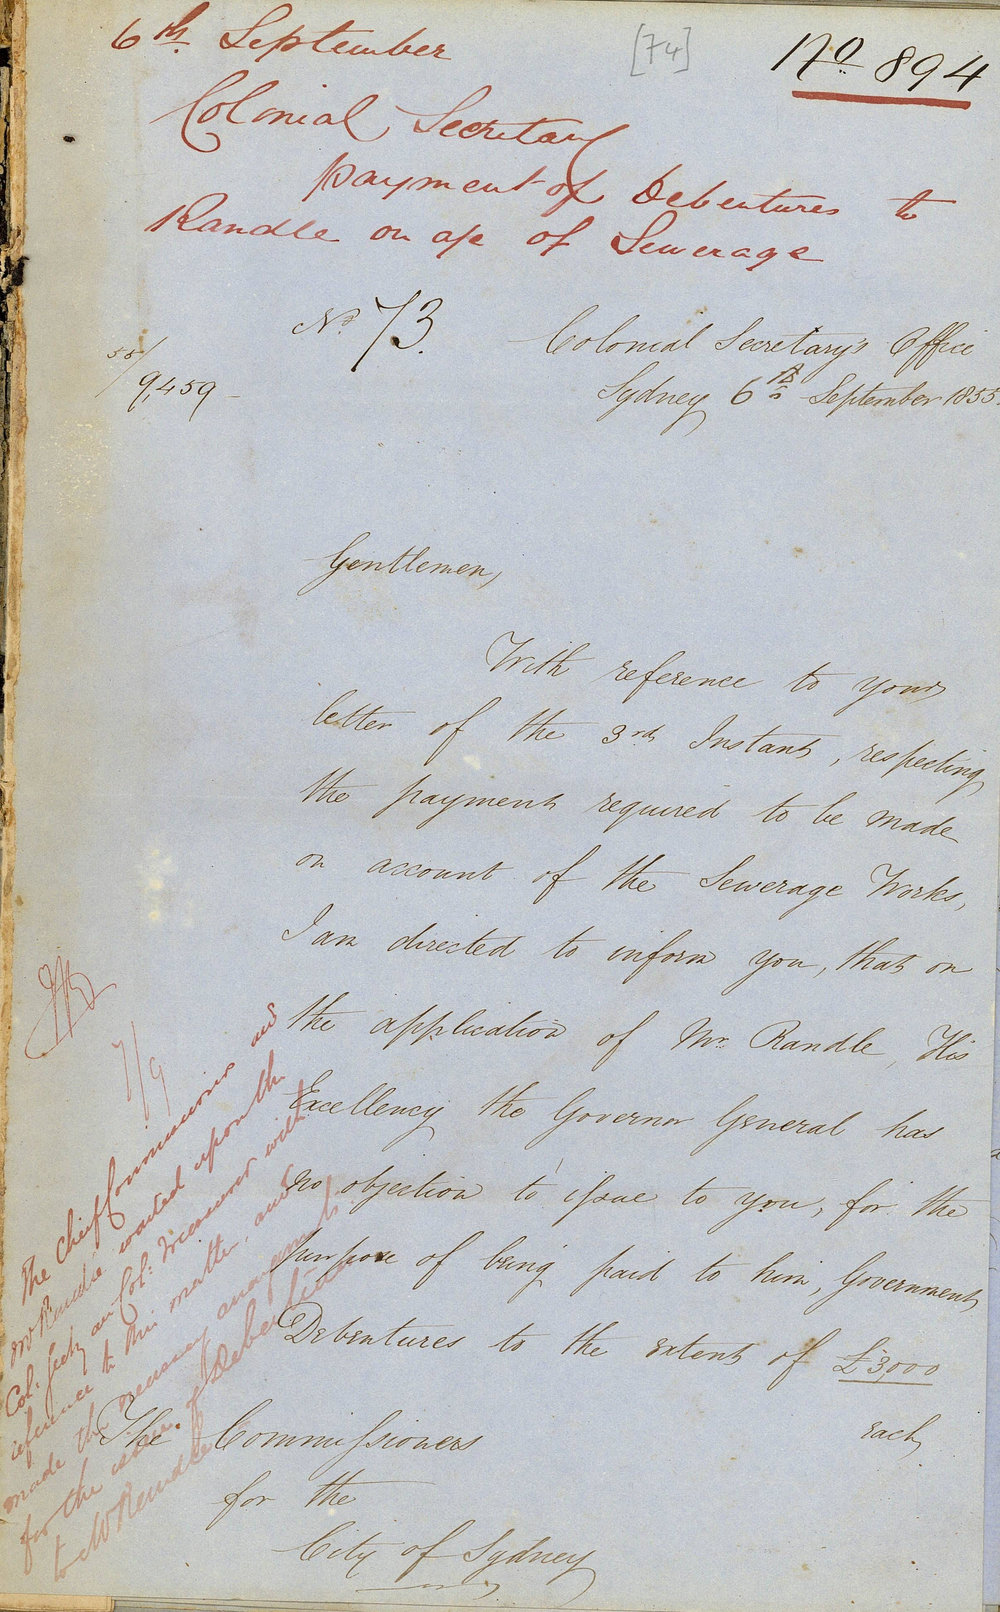 6th September
[74]
No 894
Colonial Secretary
payment of Debentures to
Randle on a/c of Sewerage
No 73.
Colonial Secretary's Office
Sydney 6th September 1855.
55/
9,459
Gentlemen,
With reference to your
letter of the 3rd Instant, respecting
the payment required to be made
on account of the Sewerage Works,
I am directed to inform you, that on
the application of Mr. Randle, His
Excellency the Governor General has
no objection to issue to you, for the
purpose of being paid to him, Government
Debentures to the extent of £3000
each
The Commissioners
for the
City of Sydney
7/9
The Chief Commissioner and
Mr Randle waited upon the
Col: Secy and Col: Treasurer with
reference to this matter, and
made the necessary arrangements
for the issue of Debentures
to Mr Randle